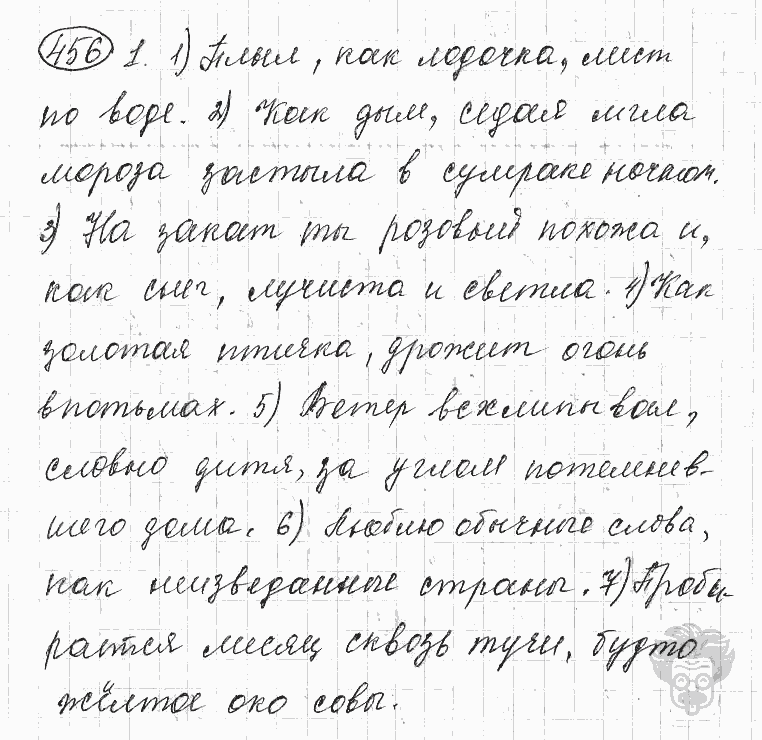 456 1. 1) Плыл, как лодочка, лист
по воде. 2) Как дым, седая мгла
мороза застыла в сумраке ночном.
3) На закат ты розовый похожа и,
как снег, лучиста и светла. 4) Как
золотая птичка, дрожит огонь
впотьмах. 5) Ветер всхлипывал,
словно дитя, за углом потемнев-
шего дома. 6) Люблю обычные слова,
как неизведанные страны. 7) Проби-
рается месяц сквозь тучи, будто
жёлтое око совы.